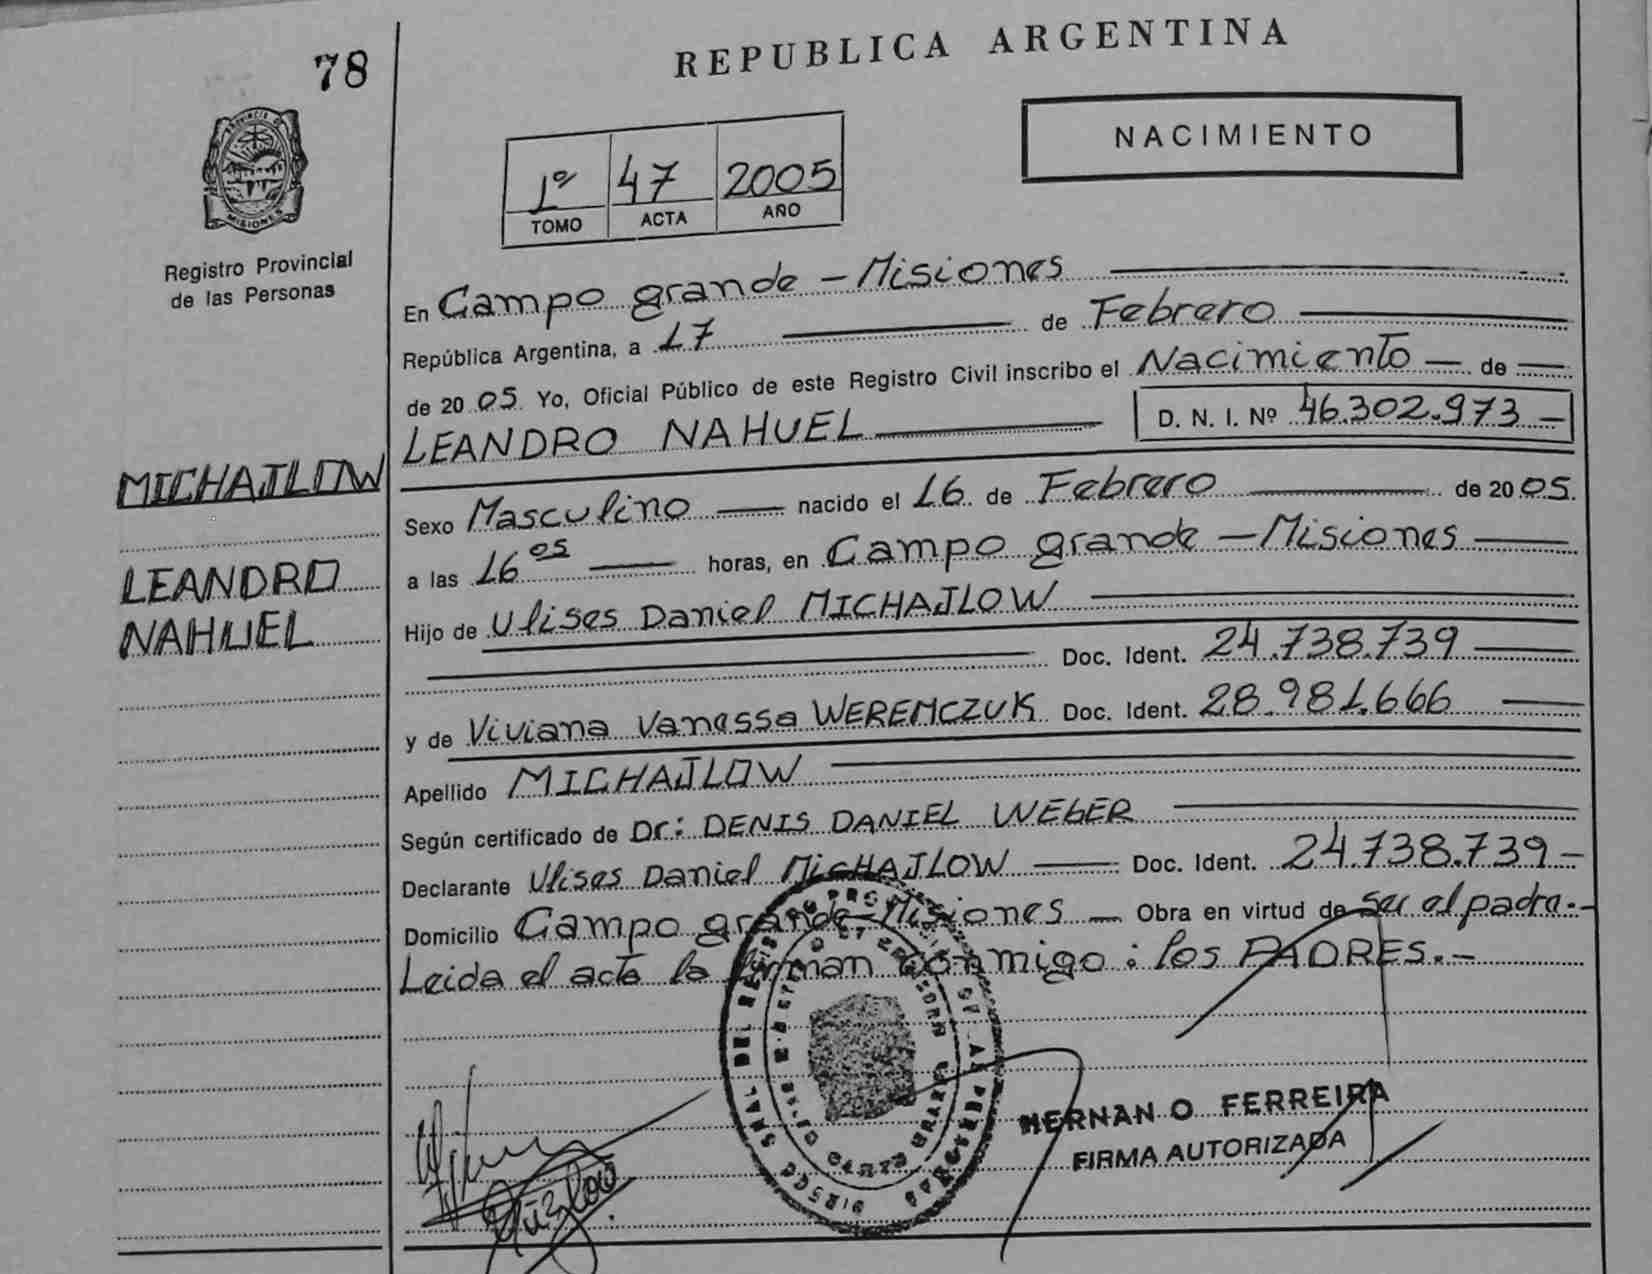 78
REPUBLICA ARGENTINA
NACIMIENTO
1º 47 2005
TOMO ACTA AÑO
MISIONES
Registro Provincial
de las Personas
En Campo grande - Misiones
República Argentina, a 17 de Febrero
de 2005 Yo, Oficial Público de este Registro Civil inscribo el Nacimiento de
LEANDRO NAHUEL D. N. I. Nº 46.302.973
MICHAJLOW
LEANDRO
NAHUEL
Sexo Masculino nacido el 16 de Febrero de 2005.
a las 16 05 horas, en Campo grande - Misiones
Hijo de Ulises Daniel MICHAJLOW
Doc. Ident. 24.738.739
y de Viviana Vanessa WEREMCZUK Doc. Ident. 28.981.666
Apellido MICHAJLOW
Según certificado de Dr: DENIS DANIEL WEBER
Declarante Ulises Daniel MICHAJLOW Doc. Ident. 24.738.739
Domicilio Campo grande - Misiones Obra en virtud de ser el padre.-
Leida el acta la firman conmigo: los PADRES.-
HERNAN O FERREIRA
FIRMA AUTORIZADA